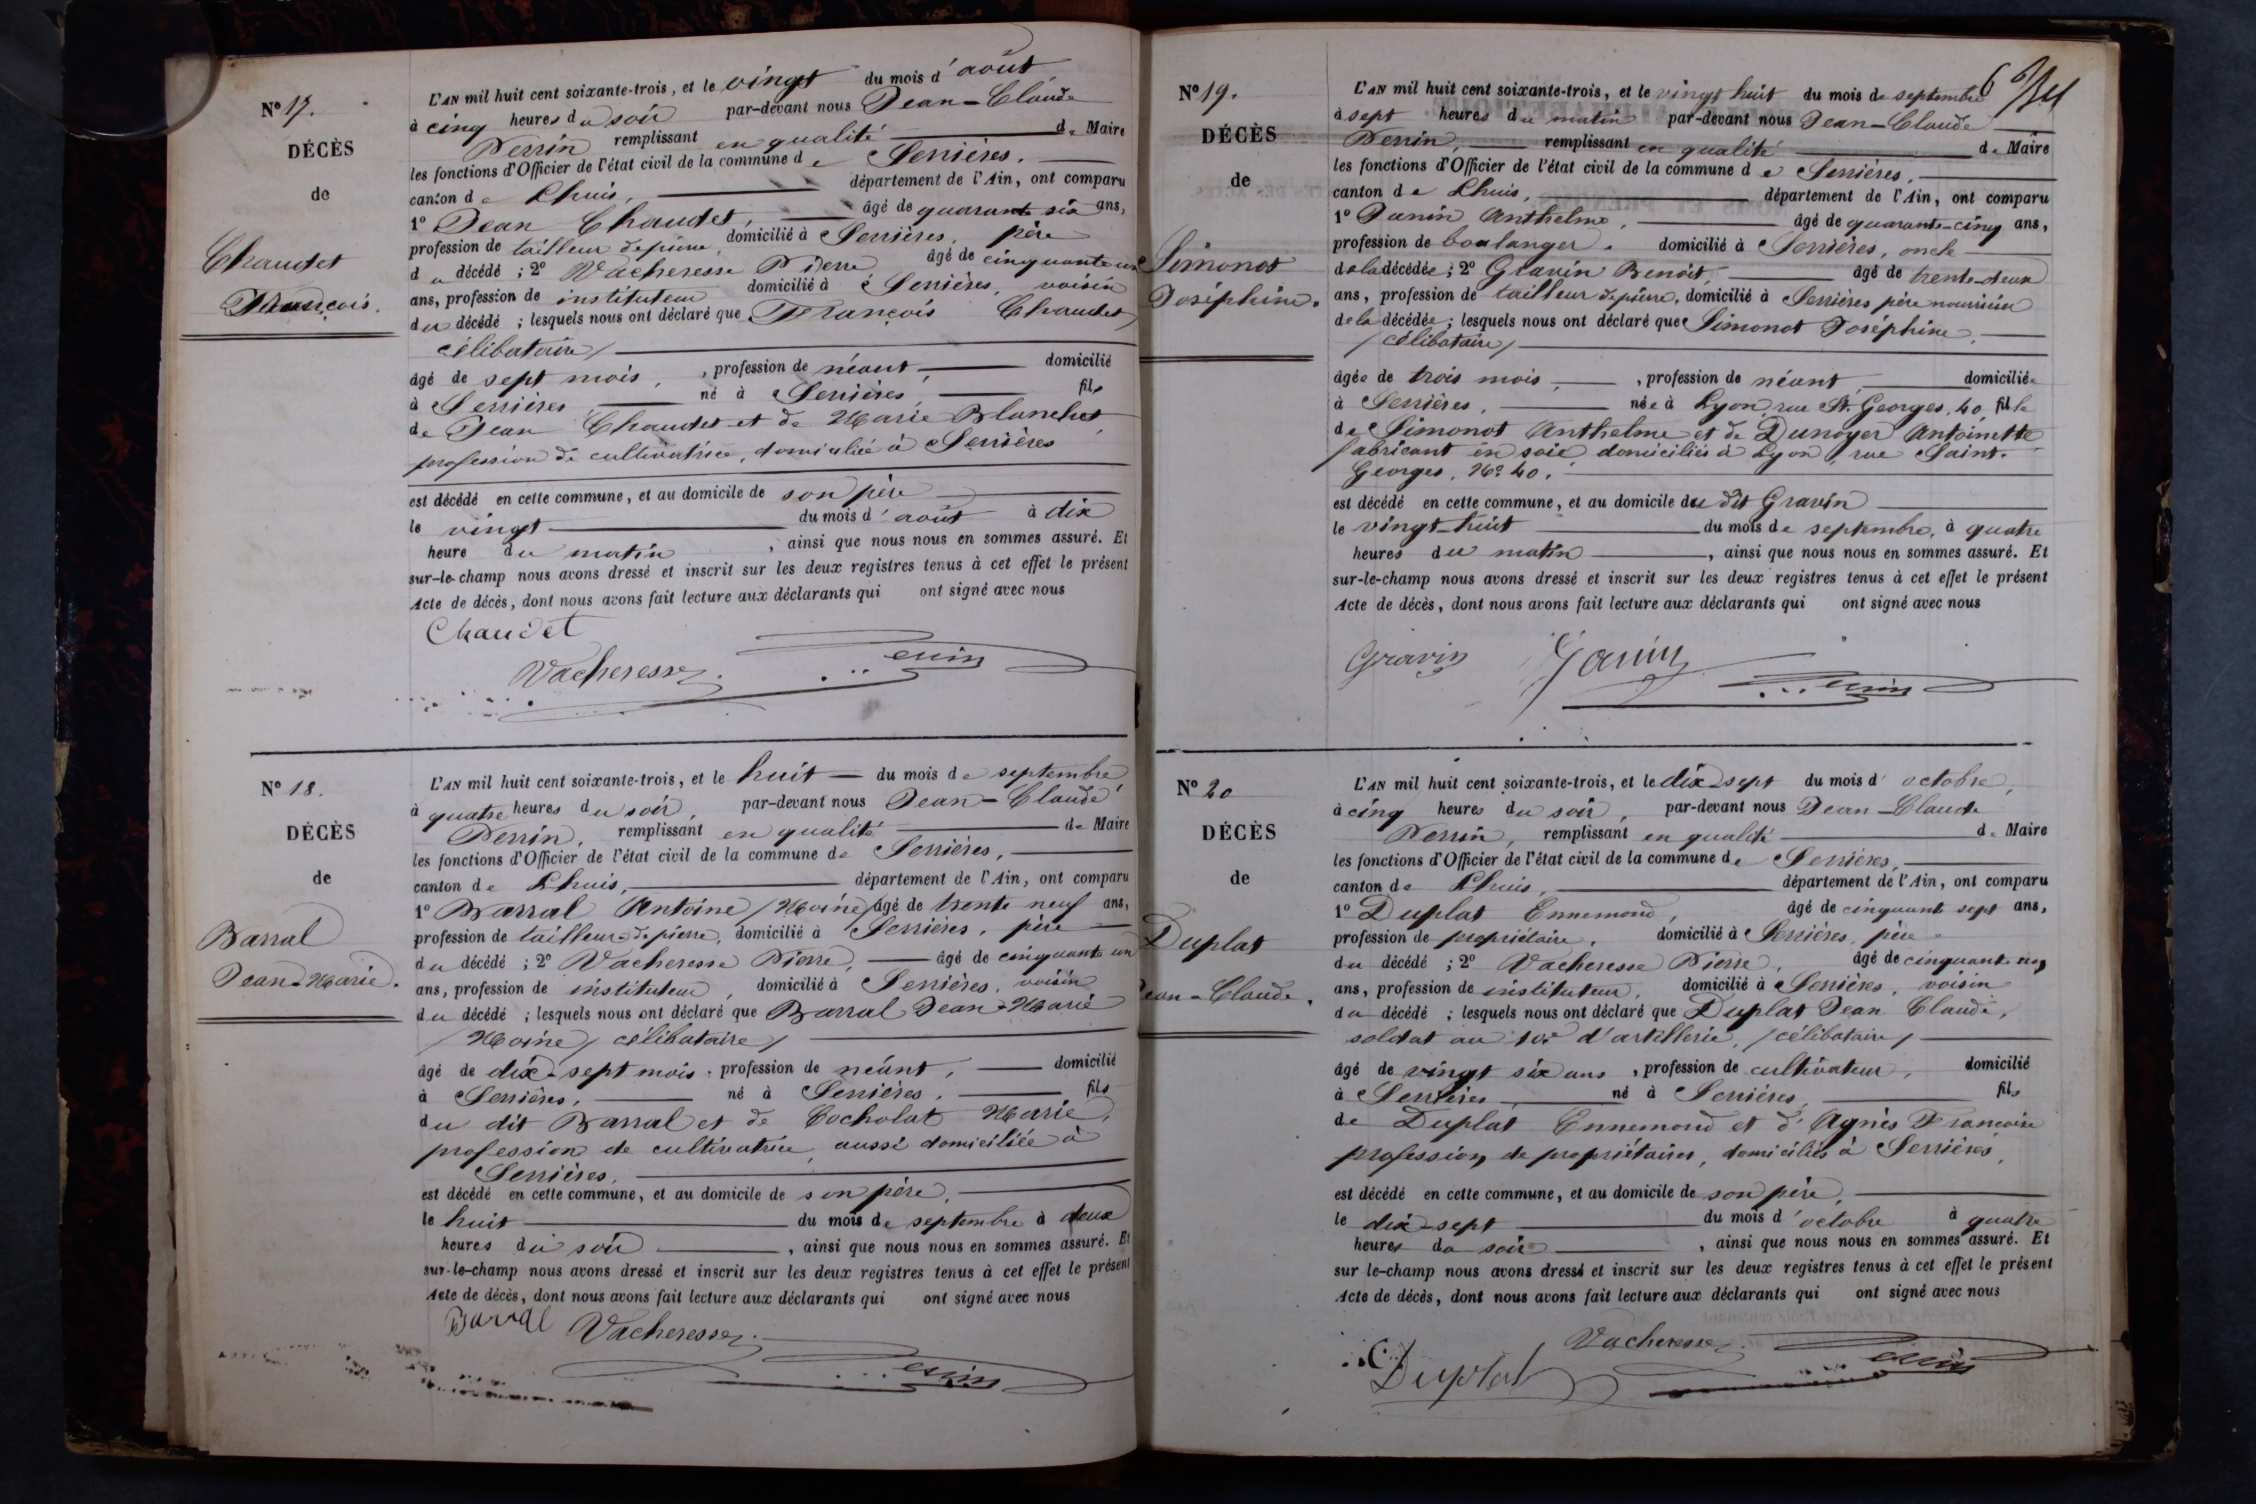 N° 17.
DÉCÈS
de
Chaudet
François.
L'AN mil huit cent soixante-trois, et le vingt du mois d'août
à cinq heures du soir par-devant nous Jean-Claude
Perrin remplissant en qualité de Maire
les fonctions d'Officier de l'état civil de la commune de Serrières.
canton de Lhuis, département de l'Ain, ont comparu
1° Jean Chaudet, âgé de quarante six ans,
profession de tailleur de pierre, domicilié à Serrières, père
du décédé ; 2° Vacheresse Pierre âgé de cinquante un
ans, profession de instituteur domicilié à Serrières, voisin
du décédé ; lesquels nous ont déclaré que François Chaudet
célibataire/
âgé de sept mois, , profession de néant, domicilié
à Serrières né à Serrières, fils
de Jean Chaudet et de Marie Blanchet,
profession de cultivatrice, domiciliée à Serrières
est décédé en cette commune, et au domicile de son père
le vingt du mois d'août à dix
heure du matin , ainsi que nous nous en sommes assuré. Et
sur-le-champ nous avons dressé et inscrit sur les deux registres tenus à cet effet le présent
Acte de décès, dont nous avons fait lecture aux déclarants qui ont signé avec nous
Chaudet
Vacheresse Perrin
N° 18.
DÉCÈS
de
Barral
Jean-Marie.
L'AN mil huit cent soixante-trois, et le huit du mois de septembre
à quatre heures du soir, par-devant nous Jean-Claude
Perrin, remplissant en qualité de Maire
les fonctions d'Officier de l'état civil de la commune de Serrières,
canton de Lhuis, département de l'Ain, ont comparu
1° Barral Antoine /Moine/ âgé de trente neuf ans,
profession de tailleur de pierre, domicilié à Serrières, père
du décédé ; 2° Vacheresse Pierre, âgé de cinquante un
ans, profession de instituteur, domicilié à Serrières, voisin
du décédé ; lesquels nous ont déclaré que Barral Jean-Marie
/Moine/ célibataire/
âgé de dix-sept mois. profession de néant, domicilié
à Serrières, né à Serrières, fils
du dit Barral et de Cocholat Marie,
profession de cultivatrice, aussi domiciliée à
Serrières.
est décédé en cette commune, et au domicile de son père,
le huit du mois de septembre à deux
heures du soir , ainsi que nous nous en sommes assuré. Et
sur-le-champ nous avons dressé et inscrit sur les deux registres tenus à cet effet le présent
Acte de décès, dont nous avons fait lecture aux déclarants qui ont signé avec nous
Barral Vacheresse
Perrin
6
N° 19.
DÉCÈS
de
Simonot
Joséphine.
L'AN mil huit cent soixante-trois, et le vingt huit du mois de septembre
à sept heures du matin par-devant nous Jean-Claude
Perrin, remplissant en qualité de Maire
les fonctions d'Officier de l'état civil de la commune de Serrières,
canton de Lhuis, département de l'Ain, ont comparu
1° Janin Anthelme, âgé de quarante-cinq ans,
profession de boulanger. domicilié à Serrières, oncle
de la décédée ; 2° Gravin Benoit, âgé de trente-deux
ans, profession de tailleur de pierre, domicilié à Serrières père nourricier
de la décédée ; lesquels nous ont déclaré que Simonot Joséphine,
/célibataire/
âgée de trois mois, , profession de néant, domiciliée
à Serrières, née à Lyon, rue St Georges, 40, fille
de Simonot Anthelme et de Dunoyer Antoinette
fabricant en soie domiciliés à Lyon, rue Saint-
Georges, N° 40.
est décédé en cette commune, et au domicile du dit Gravin
le vingt-huit du mois de septembre, à quatre
heures du matin , ainsi que nous nous en sommes assuré. Et
sur-le-champ nous avons dressé et inscrit sur les deux registres tenus à cet effet le présent
Acte de décès, dont nous avons fait lecture aux déclarants qui ont signé avec nous
Gravin Janin
Perrin
N° 20
DÉCÈS
de
Duplat
Jean-Claude.
L'AN mil huit cent soixante-trois, et le dix-sept du mois d'octobre,
à cinq heures du soir, par-devant nous Jean-Claude
Perrin, remplissant en qualité de Maire
les fonctions d'Officier de l'état civil de la commune de Serrières,
canton de Lhuis, département de l'Ain, ont comparu
1° Duplat Ennemond, âgé de cinquante sept ans,
profession de propriétaire. domicilié à Serrières, père
du décédé ; 2° Vacheresse Pierre, âgé de cinquante un
ans, profession de instituteur, domicilié à Serrières, voisin
du décédé ; lesquels nous ont déclaré que Duplat Jean Claude,
soldat au 10e d'artillerie, /célibataire/
âgé de vingt six ans , profession de cultivateur, domicilié
à Serrières, né à Serrières, fils
de Duplat Ennemond et d'Agnès Françoise
profession de propriétaires, domiciliés à Serrières,
est décédé en cette commune, et au domicile de son père,
le dix-sept du mois d'octobre à quatre
heures du soir , ainsi que nous nous en sommes assuré. Et
sur le-champ nous avons dressé et inscrit sur les deux registres tenus à cet effet le présent
Acte de décès, dont nous avons fait lecture aux déclarants qui ont signé avec nous
Vacheresse Perrin
Duplat